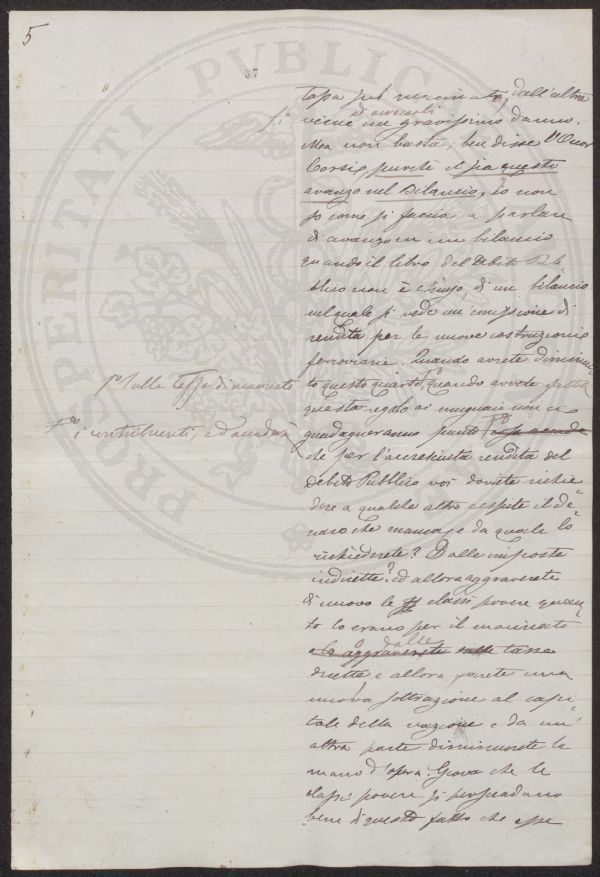 5
37
PROSPERITATI PVBLICAE
tassa sul macinato, dall'altra
viene un gravissimo danno.
Ma non basta; ben disse l'Onor
Corsi, purchè ci sia questo
avanzo nel Bilancio, io non
so come si faccia a parlare
di avanzo in un bilancio
quando il libro del Debito Pub
blico non è chiuso, di un bilancio
nel quale si vede un'emissione di
rendita per le nuove costruzioni
ferroviarie. Quando avrete diminui
to questo quarto, quando avrete fatto
questo regalo ai mugnai non ci
guadagneranno punto
che per l'accresciuta rendita del
Debito Pubblico voi dovete richie
dere a qualche altro cespite il de
naro che manca, e da quale lo
richiederete? Dalle imposte
indirette? ed allora aggraverete
di nuovo le classi povere quan
to lo erano per il macinato
o dalle tasse
dirette e allora farete una
nuova sottrazione al capi
tale della nazione e da un'
altra parte diminuirete la
mano d'opera. Giova che le
classi povere si persuadano
bene di questo fatto che esse
sulla tassa di macinato
i contribuenti, ed accadrà